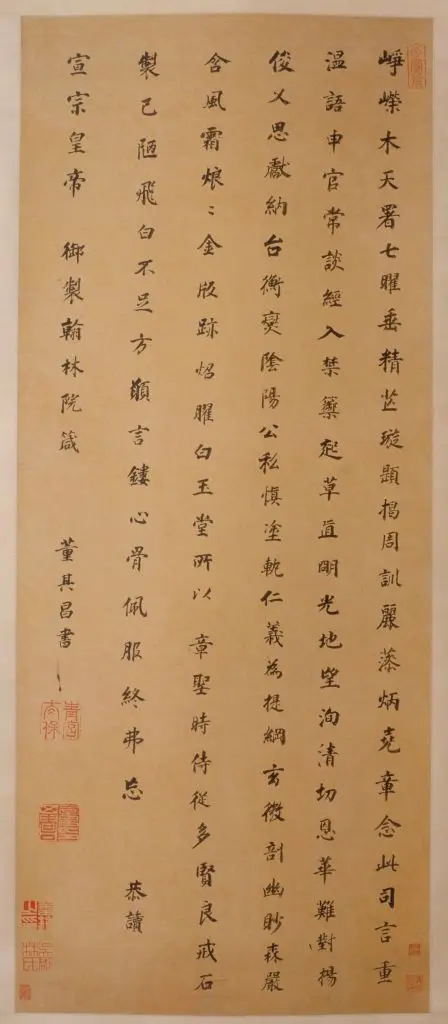 崢嶸木天署七曜垂精芒璇題揭周訓麗藻炳堯章念此司言重
温語申官常談經入禁籞起草直明光地望洵清切恩華難對揚
俊乂思獻納台衡爕陰陽公私慎塗軌仁義為提綱玄微剖幽眇森嚴
含風霜烺〻金版跡炤曜白玉堂所以章聖時侍從多賢良戒石
製已陋飛白不足方願言鏤心骨佩服終弗忘 恭讀
宣宗皇帝 御製翰林院箴 董其昌書